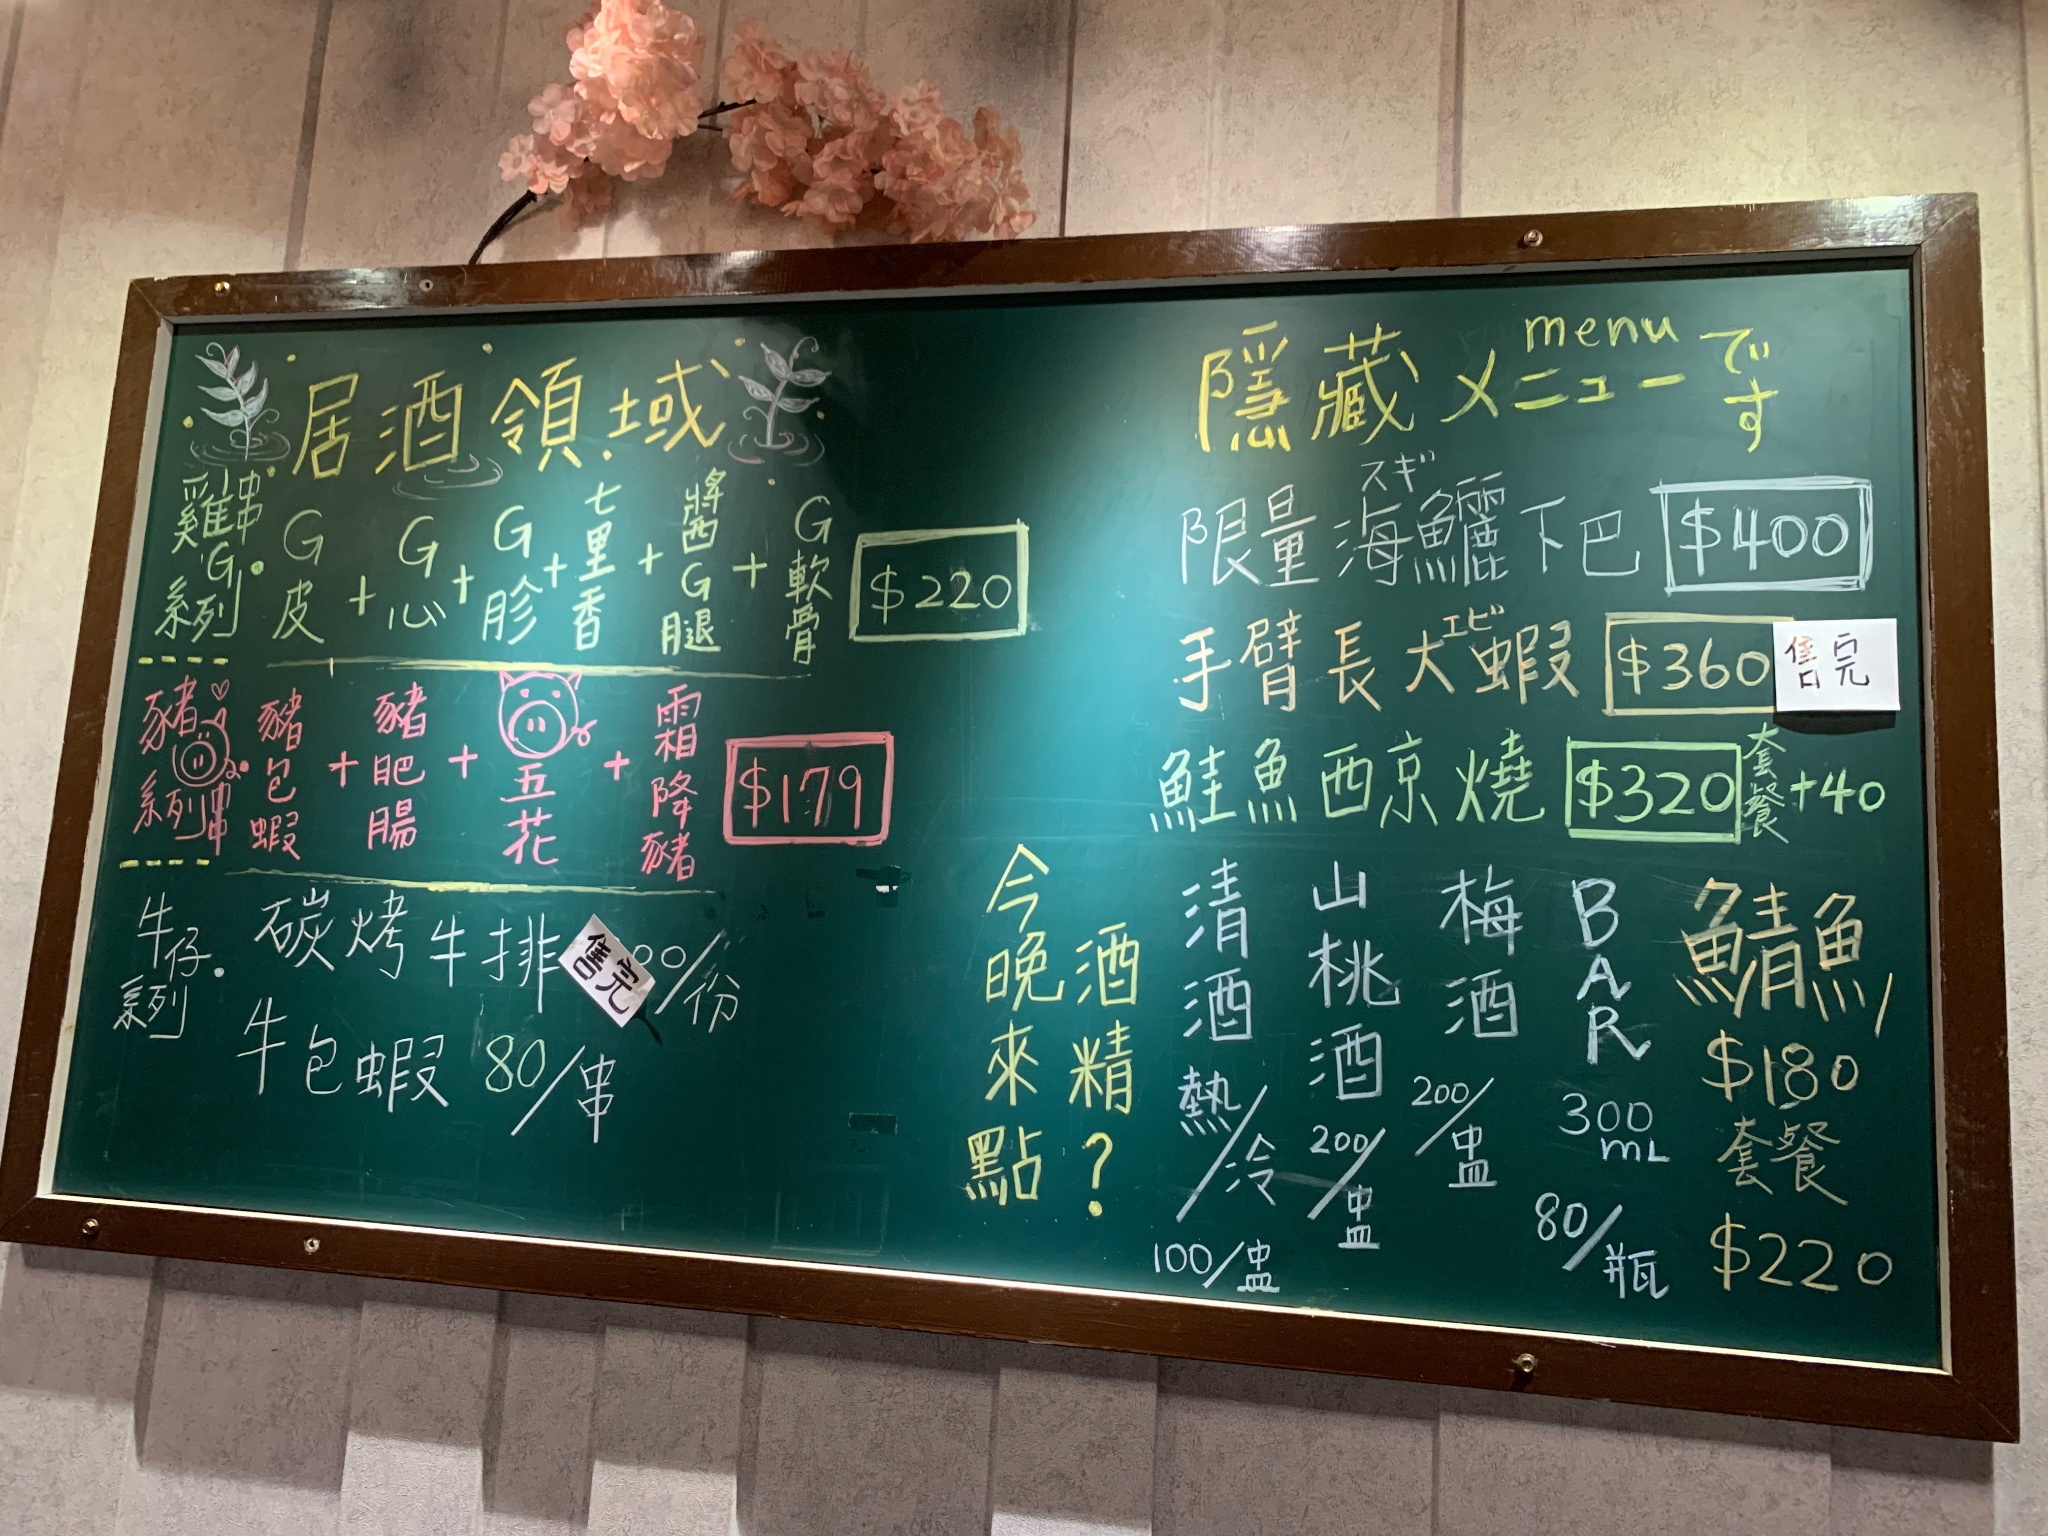 居酒領域
雞串G系列
G皮+G心+G胗+七里香+醬G腿+G軟骨 $220
豬系列串
豬包蝦+豬肥腸+五花+霜降豬 $179
牛仔系列
碳烤牛排 售完 00/份
牛包蝦 80/串
隱藏メニューです
menu
限量海鱺下巴 $400
スギ
手臂長大蝦 $360 售完
エビ
鮭魚西京燒 $320 套餐+40
今晚來點
酒精?
清酒 熱/冷 100/盅
山桃酒 200/盅
梅酒 200/盅
BAR 300mL 80/瓶
鯖魚
$180
套餐
$220